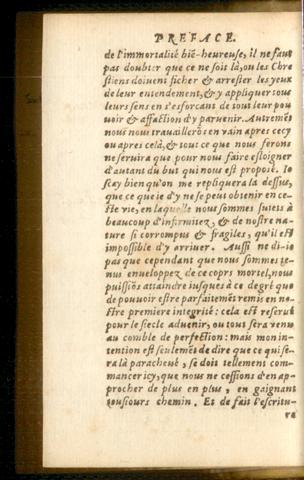 PREFACE.
de l'immortalité biē-heureuse, il ne faut
pas doubter que ce ne soit là, ou les Chre
stiens doiuent ficher & arrester les yeux
de leur entendement, & y appliquer tous
leurs sens en s'esforcans de tout leur pou
uoir & affectiō d'y paruenir. Autremēt
nous nous trauaillerōs en vain apres cecy
ou apres celà, & tout ce que nous ferons
ne seruira que pour nous faire esloigner
d'autant du but qui nous est proposé. Ie
scay bien qu'on me repliquera là dessus,
que ce que ie d'y ne se peut obtenir en ce-
ste vie, en laquelle nous sommes sutets à
beaucoup d'infirmitez, & de nostre na-
ture si corrompus & fragiles, qu'il est
impossible d'y arriuer. Aussi ne di-ie
pas que cependant que nous sommes te-
nus enueloppez de ce coprs mortel, nous
puissiōs attaindre iusques à ce degré que
de pouuoir estre parfaitemēt remis en no-
stre premiere integrité: cela est reserué
pour le siecle aduenir, ou tout sera venu
au comble de perfection: mais mon in-
tention est seulemēt de dire que ce qui se-
ra là paracheué, se doit tellement com-
mancer icy, que nous ne cessions d'en ap-
procher de plus en plus, en gaignant
tousiours chemin. Et de fait l'escritu-
re